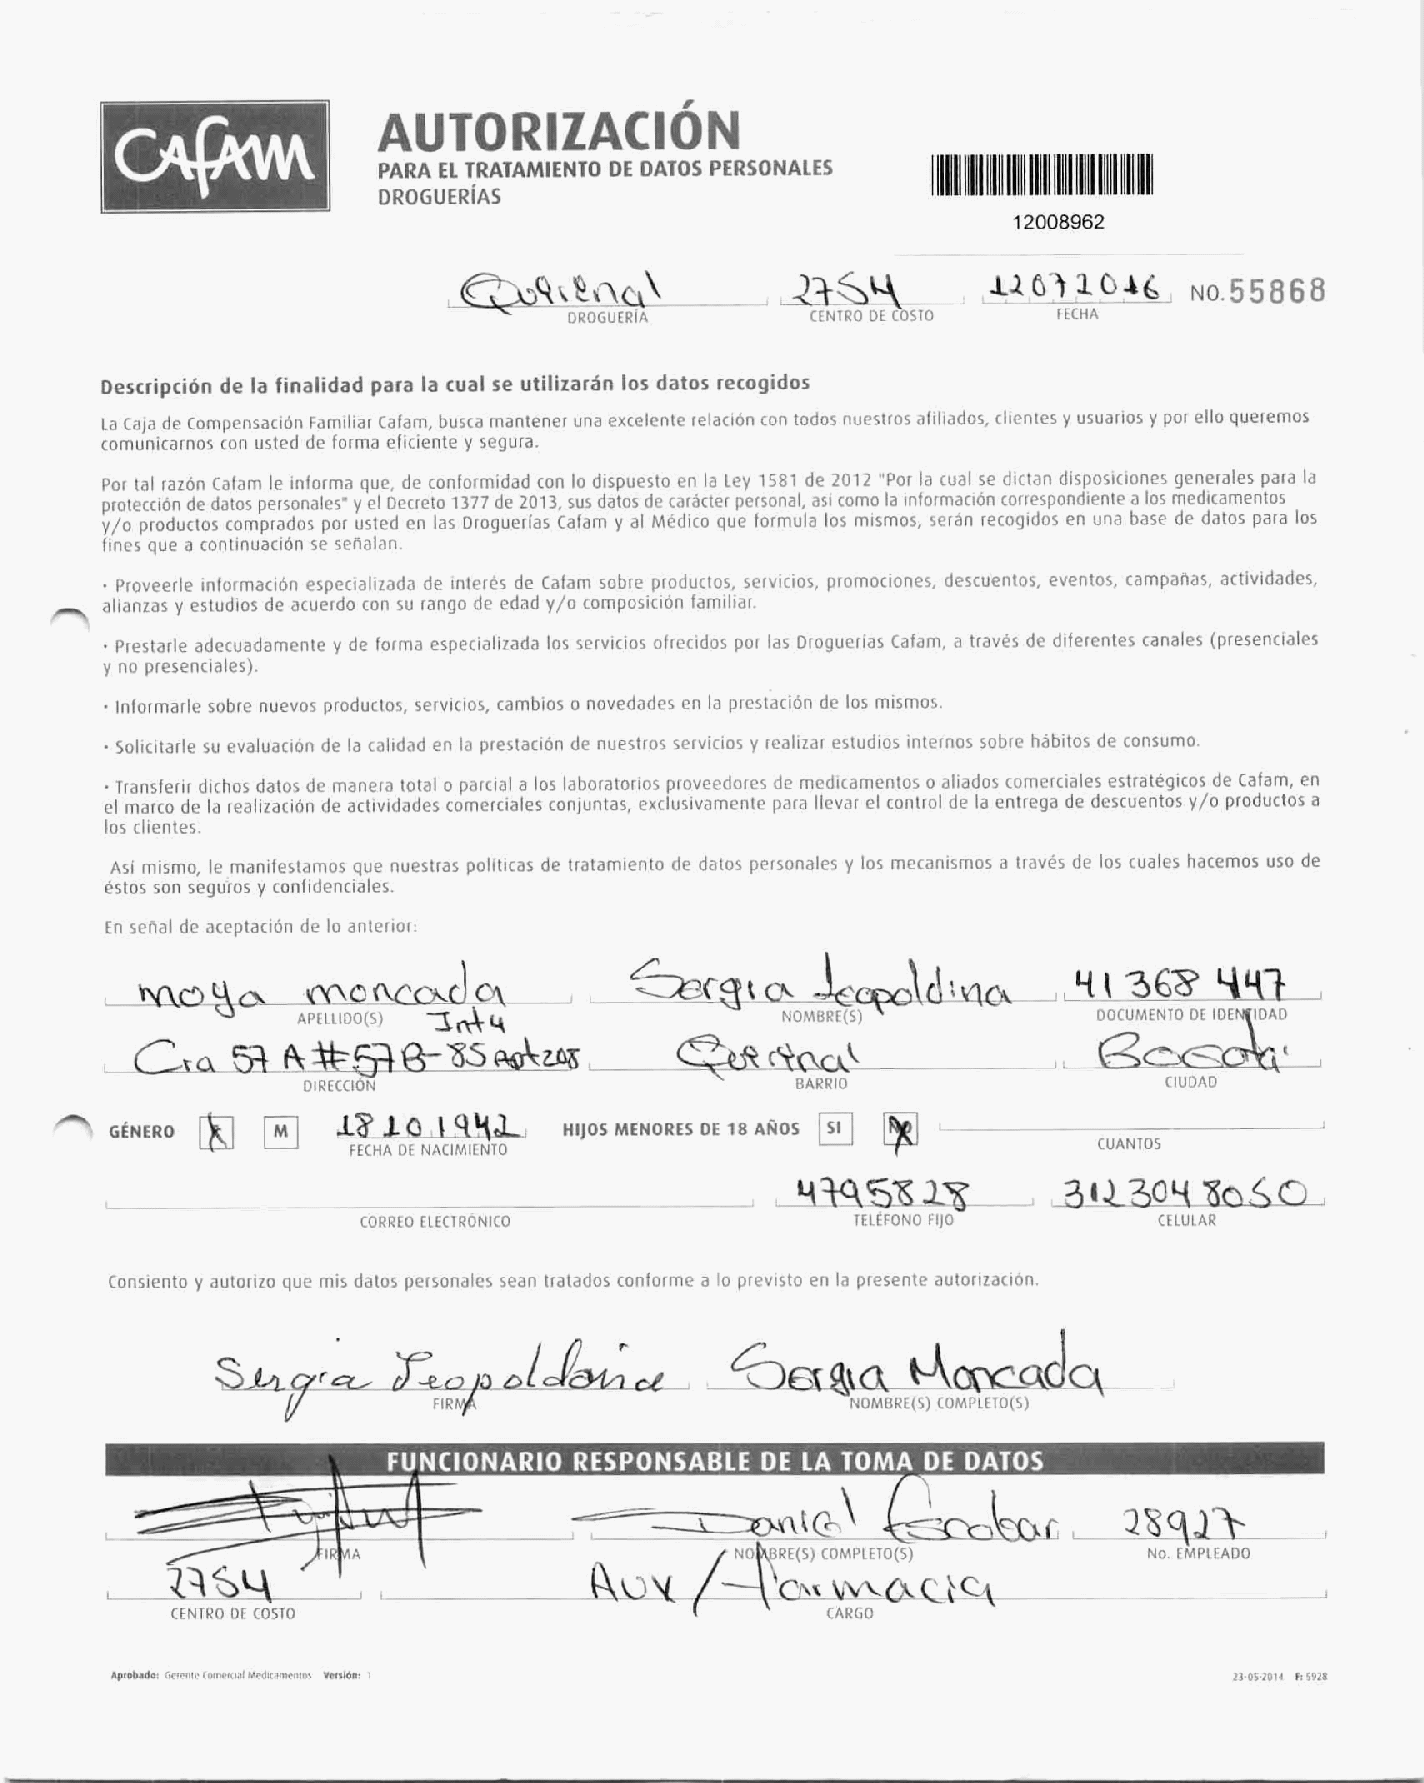 CAFAM
AUTORIZACIÓN
PARA EL TRATAMIENTO DE DATOS PERSONALES
DROGUERÍAS
12008962
Quirinal 2754 12072016 NO.55868
DROGUERÍA CENTRO DE COSTO FECHA
Descripción de la finalidad para la cual se utilizarán los datos recogidos
La Caja de Compensación Familiar Cafam, busca mantener una excelente relación con todos nuestros afiliados, clientes y usuarios y por ello queremos
comunicarnos con usted de forma eficiente y segura.
Por tal razón Cafam le informa que, de conformidad con lo dispuesto en la Ley 1581 de 2012 "Por la cual se dictan disposiciones generales para la
protección de datos personales" y el Decreto 1377 de 2013, sus datos de carácter personal, asi como la información correspondiente a los medicamentos
y/o productos comprados por usted en las Droguerías Cafam y al Médico que formula los mismos, serán recogidos en una base de datos para los
fines que a continuación se señalan.
· Proveerle información especializada de interés de Cafam sobre productos, servicios, promociones, descuentos, eventos, campañas, actividades,
alianzas y estudios de acuerdo con su rango de edad y/o composición familiar.
· Prestarle adecuadamente y de forma especializada los servicios ofrecidos por las Droguerías Cafam, a través de diferentes canales (presenciales
y no presenciales).
· Informarle sobre nuevos productos, servicios, cambios o novedades en la prestación de los mismos.
· Solicitarle su evaluación de la calidad en la prestación de nuestros servicios y realizar estudios internos sobre hábitos de consumo.
· Transferir dichos datos de manera total o parcial a los laboratorios proveedores de medicamentos o aliados comerciales estratégicos de Cafam, en
el marco de la realización de actividades comerciales conjuntas, exclusivamente para llevar el control de la entrega de descuentos y/o productos a
los clientes.
Así mismo, le manifestamos que nuestras políticas de tratamiento de datos personales y los mecanismos a través de los cuales hacemos uso de
éstos son seguros y confidenciales.
En señal de aceptación de lo anterior:
moya moncada Sergia Leopoldina 41368447
APELLIDO(S) NOMBRE(S) DOCUMENTO DE IDENTIDAD
Int 4
Cra 57 A # 57B-85 Apt 208 Quirinal Bogota
DIRECCIÓN BARRIO CIUDAD
GÉNERO M 18101942 HIJOS MENORES DE 18 AÑOS SI NO
FECHA DE NACIMIENTO CUANTOS
4795828 3123048050
CORREO ELECTRÓNICO TELÉFONO FIJO CELULAR
Consiento y autorizo que mis datos personales sean tratados conforme a lo previsto en la presente autorización.
Sergia Leopoldina Sergia Moncada
FIRMA NOMBRE(S) COMPLETO(S)
FUNCIONARIO RESPONSABLE DE LA TOMA DE DATOS
Daniel Escobar 28927
FIRMA NOMBRE(S) COMPLETO(S) No. EMPLEADO
2754 Aux/Farmacia
CENTRO DE COSTO CARGO
Aprobado: Gerente Comercial Medicamentos Versión: 1 23-05-2014 F: 5928